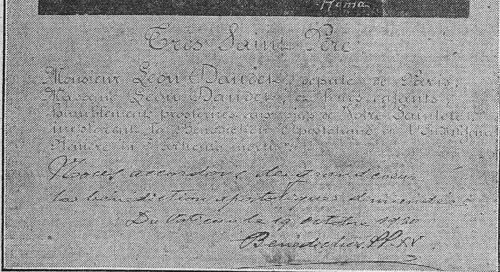 Roma
Très Saint Père
Monsieur Léon Daudet, député de Paris,
Madame Léon Daudet, et leurs enfants
humblement prosternés aux pieds de Votre Sainteté,
implorent la Bénédiction Apostolique et l'Indulgence
Plénière in articulo mortis.
Nous accordons de grand coeur
les bénédictions apostoliques demandées
Du Vatican le 19 octobre 1920
Benedictus PP. XV